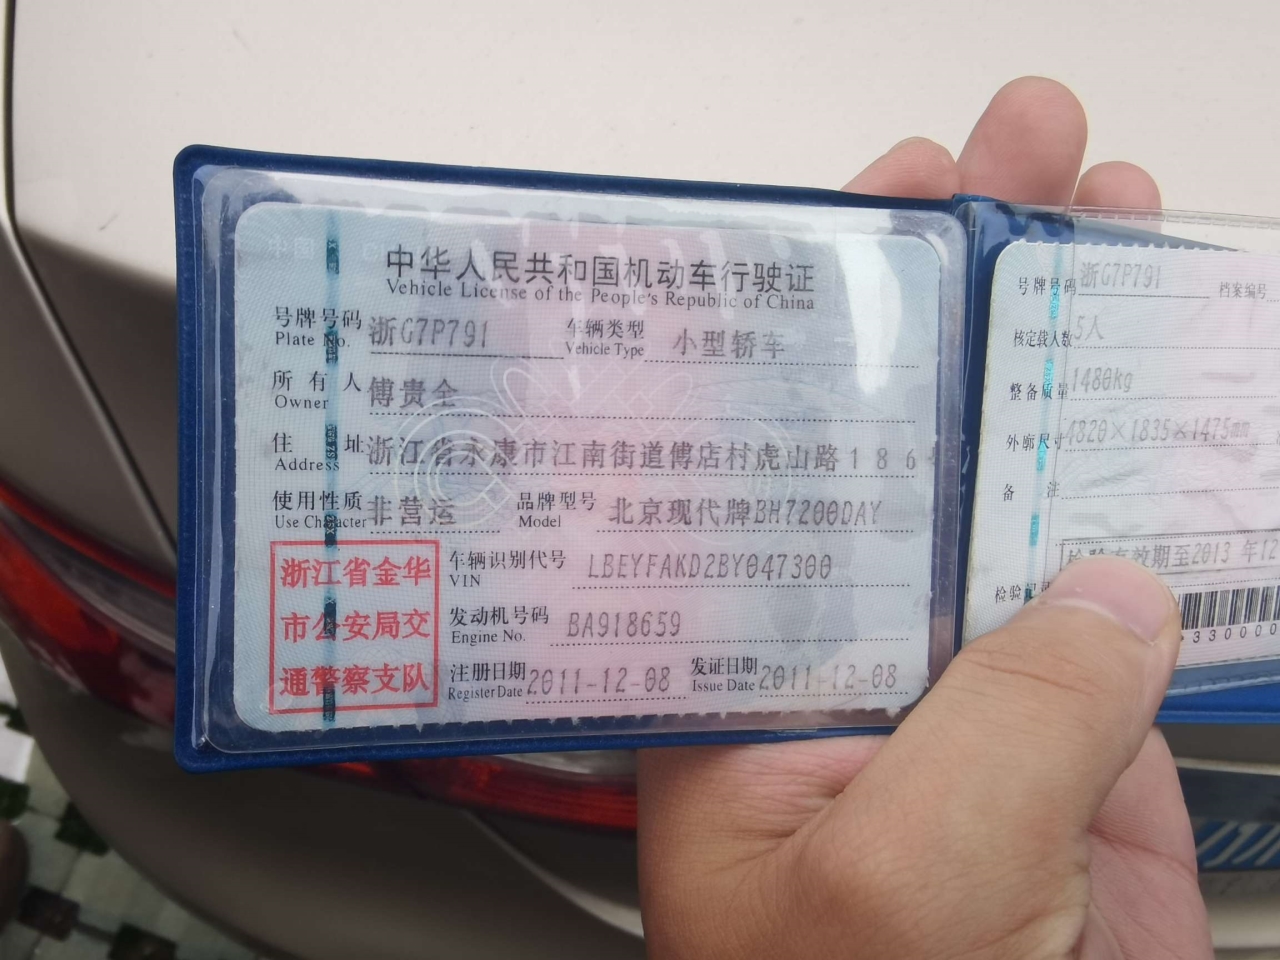 中华人民共和国机动车行驶证
Vehicle License of the People's Republic of China
号牌号码 浙G7P791 车辆类型 小型轿车
Plate No. Vehicle Type
所有人 傅贵全
Owner
住址 浙江省永康市江南街道傅店村虎山路186
Address
使用性质 非营运 品牌型号 北京现代牌BH7200DAY
Use Character Model
浙江省金华
市公安局交
通警察支队
车辆识别代号 LBEYFAKD2BY047300
VIN
发动机号码 BA918659
Engine No.
注册日期 2011-12-08 发证日期 2011-12-08
Register Date Issue Date
号牌号码 浙G7P791 档案编号
核定载人数 5人
整备质量 1480kg
外廓尺寸 4820×1835×1475mm
备注
检验有效期至2013 年12
检验记录
330000